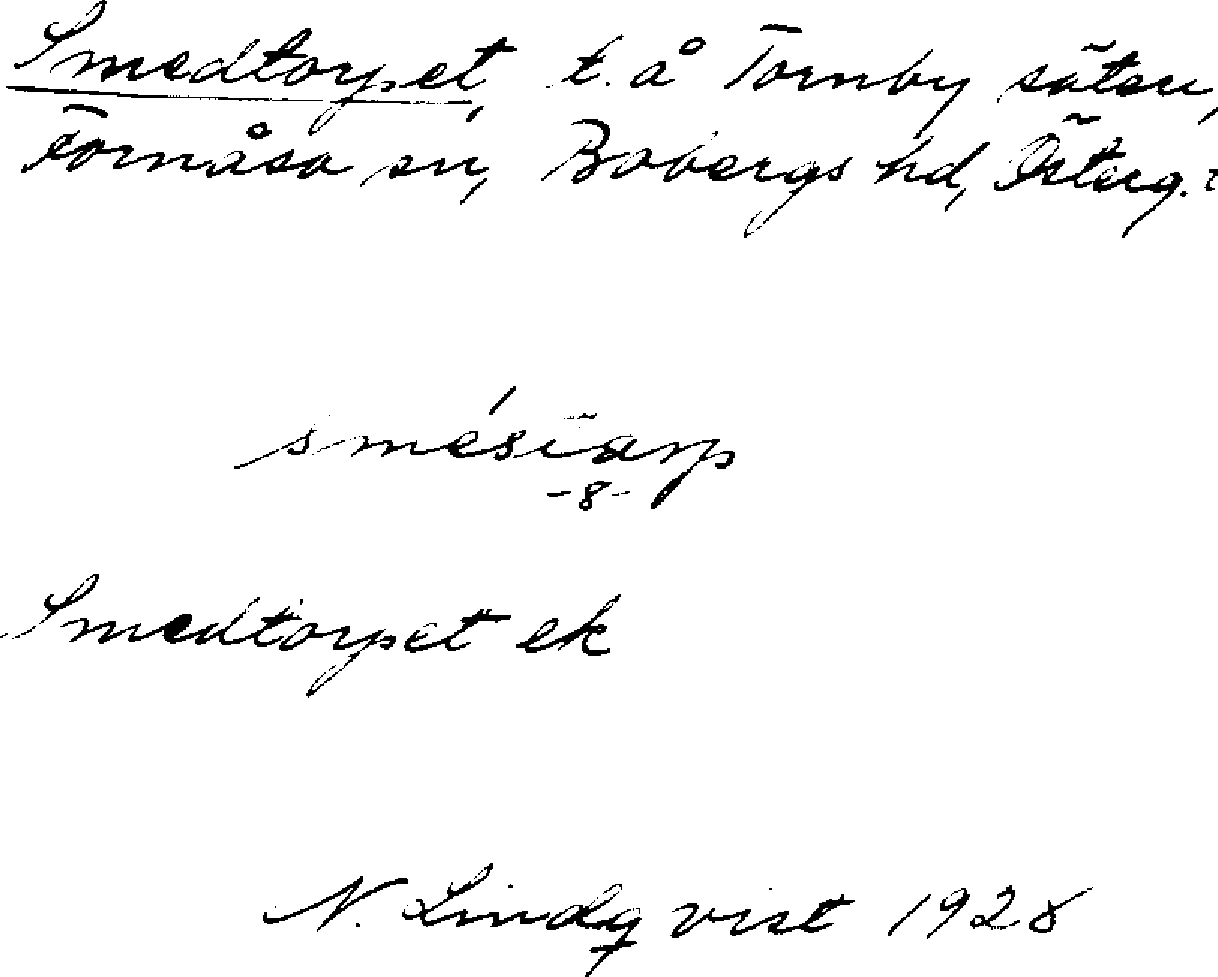 Smedtorpet, t. å Tornby säteri,
Fornåsa sn, Bobergs hd, Österg.
smésťarp
-8-
Smedtorpet ek
N. Lindqvist 1928